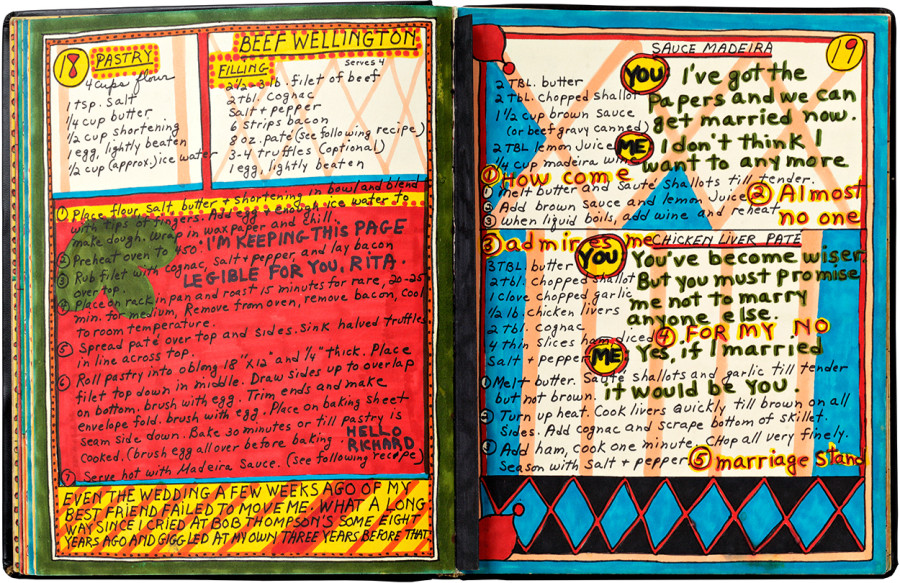 18
PASTRY
4 cups flour
1 tsp. salt
1/4 cup butter
1/2 cup shortening
1 egg, lightly beaten
1/2 cup (approx.) ice water
BEEF WELLINGTON
Serves 4
FILLING
2 1/2-3 lb. filet of beef
2 tbl. Cognac
Salt + pepper
6 strips bacon
8 oz. paté (see following recipe)
3-4 truffles (optional)
1 egg, lightly beaten
① Place flour, salt, butter + shortening in bowl and blend
with tips of fingers. Add egg + enough ice water to
make dough. Wrap in wax paper and chill.
② Preheat oven to 450°.
I'M KEEPING THIS PAGE
LEGIBLE FOR YOU, RITA.
③ Rub filet with cognac, salt + pepper, and lay bacon
over top.
④ Place on rack in pan and roast 15 minutes for rare, 20-25
min. for medium, Remove from oven, remove bacon, Cool
to room temperature.
⑤ Spread paté over top and sides. Sink halved truffles
in line across top.
⑥ Roll pastry into oblong 18" x 12" and 1/4" thick. Place
filet top down in middle. Draw sides up to overlap
on bottom. brush with egg. Trim ends and make
envelope fold. brush with egg. Place on baking sheet
seam side down. Bake 30 minutes or till pastry is
cooked. (brush egg all over before baking.
HELLO
RICHARD
⑦ Serve hot with Madeira Sauce. (see following recipe)
EVEN THE WEDDING A FEW WEEKS AGO OF MY
BEST FRIEND FAILED TO MOVE ME. WHAT A LONG
WAY SINCE I CRIED AT BOB THOMPSON'S SOME EIGHT
YEARS AGO AND GIGGLED AT MY OWN THREE YEARS BEFORE THAT
19
SAUCE MADEIRA
2 TBL. butter
2 TBL. chopped shallot
1 1/2 cup brown sauce
(or beef gravy canned)
2 TBL lemon Juice
1/4 cup madeira wine
YOU: I've got the
Papers and we can
get married now.
ME: I don't think I
want to any more
① How come
① melt butter and Sauté shallots till tender.
② Add brown sauce and lemon Juice
③ When liquid boils, add wine and reheat
② Almost
no one
③ admires me
CHICKEN LIVER PATÉ
3 TBL. butter
2 tbl. chopped shallot
1 clove chopped garlic
1/2 lb chicken livers
2 tbl. cognac
4 thin slices ham, diced
Salt + pepper
YOU: You've become wiser
But you must promise
me not to marry
anyone else.
④ FOR MY NO
ME: Yes, if I married
it would be YOU.
① Melt butter. Sauté shallots and garlic till tender
but not brown.
② Turn up heat. Cook livers quickly till brown on all
sides. Add cognac and scrape bottom of skillet.
③ Add ham, cook one minute. Chop all very finely.
Season with salt + pepper
⑤ marriage stand